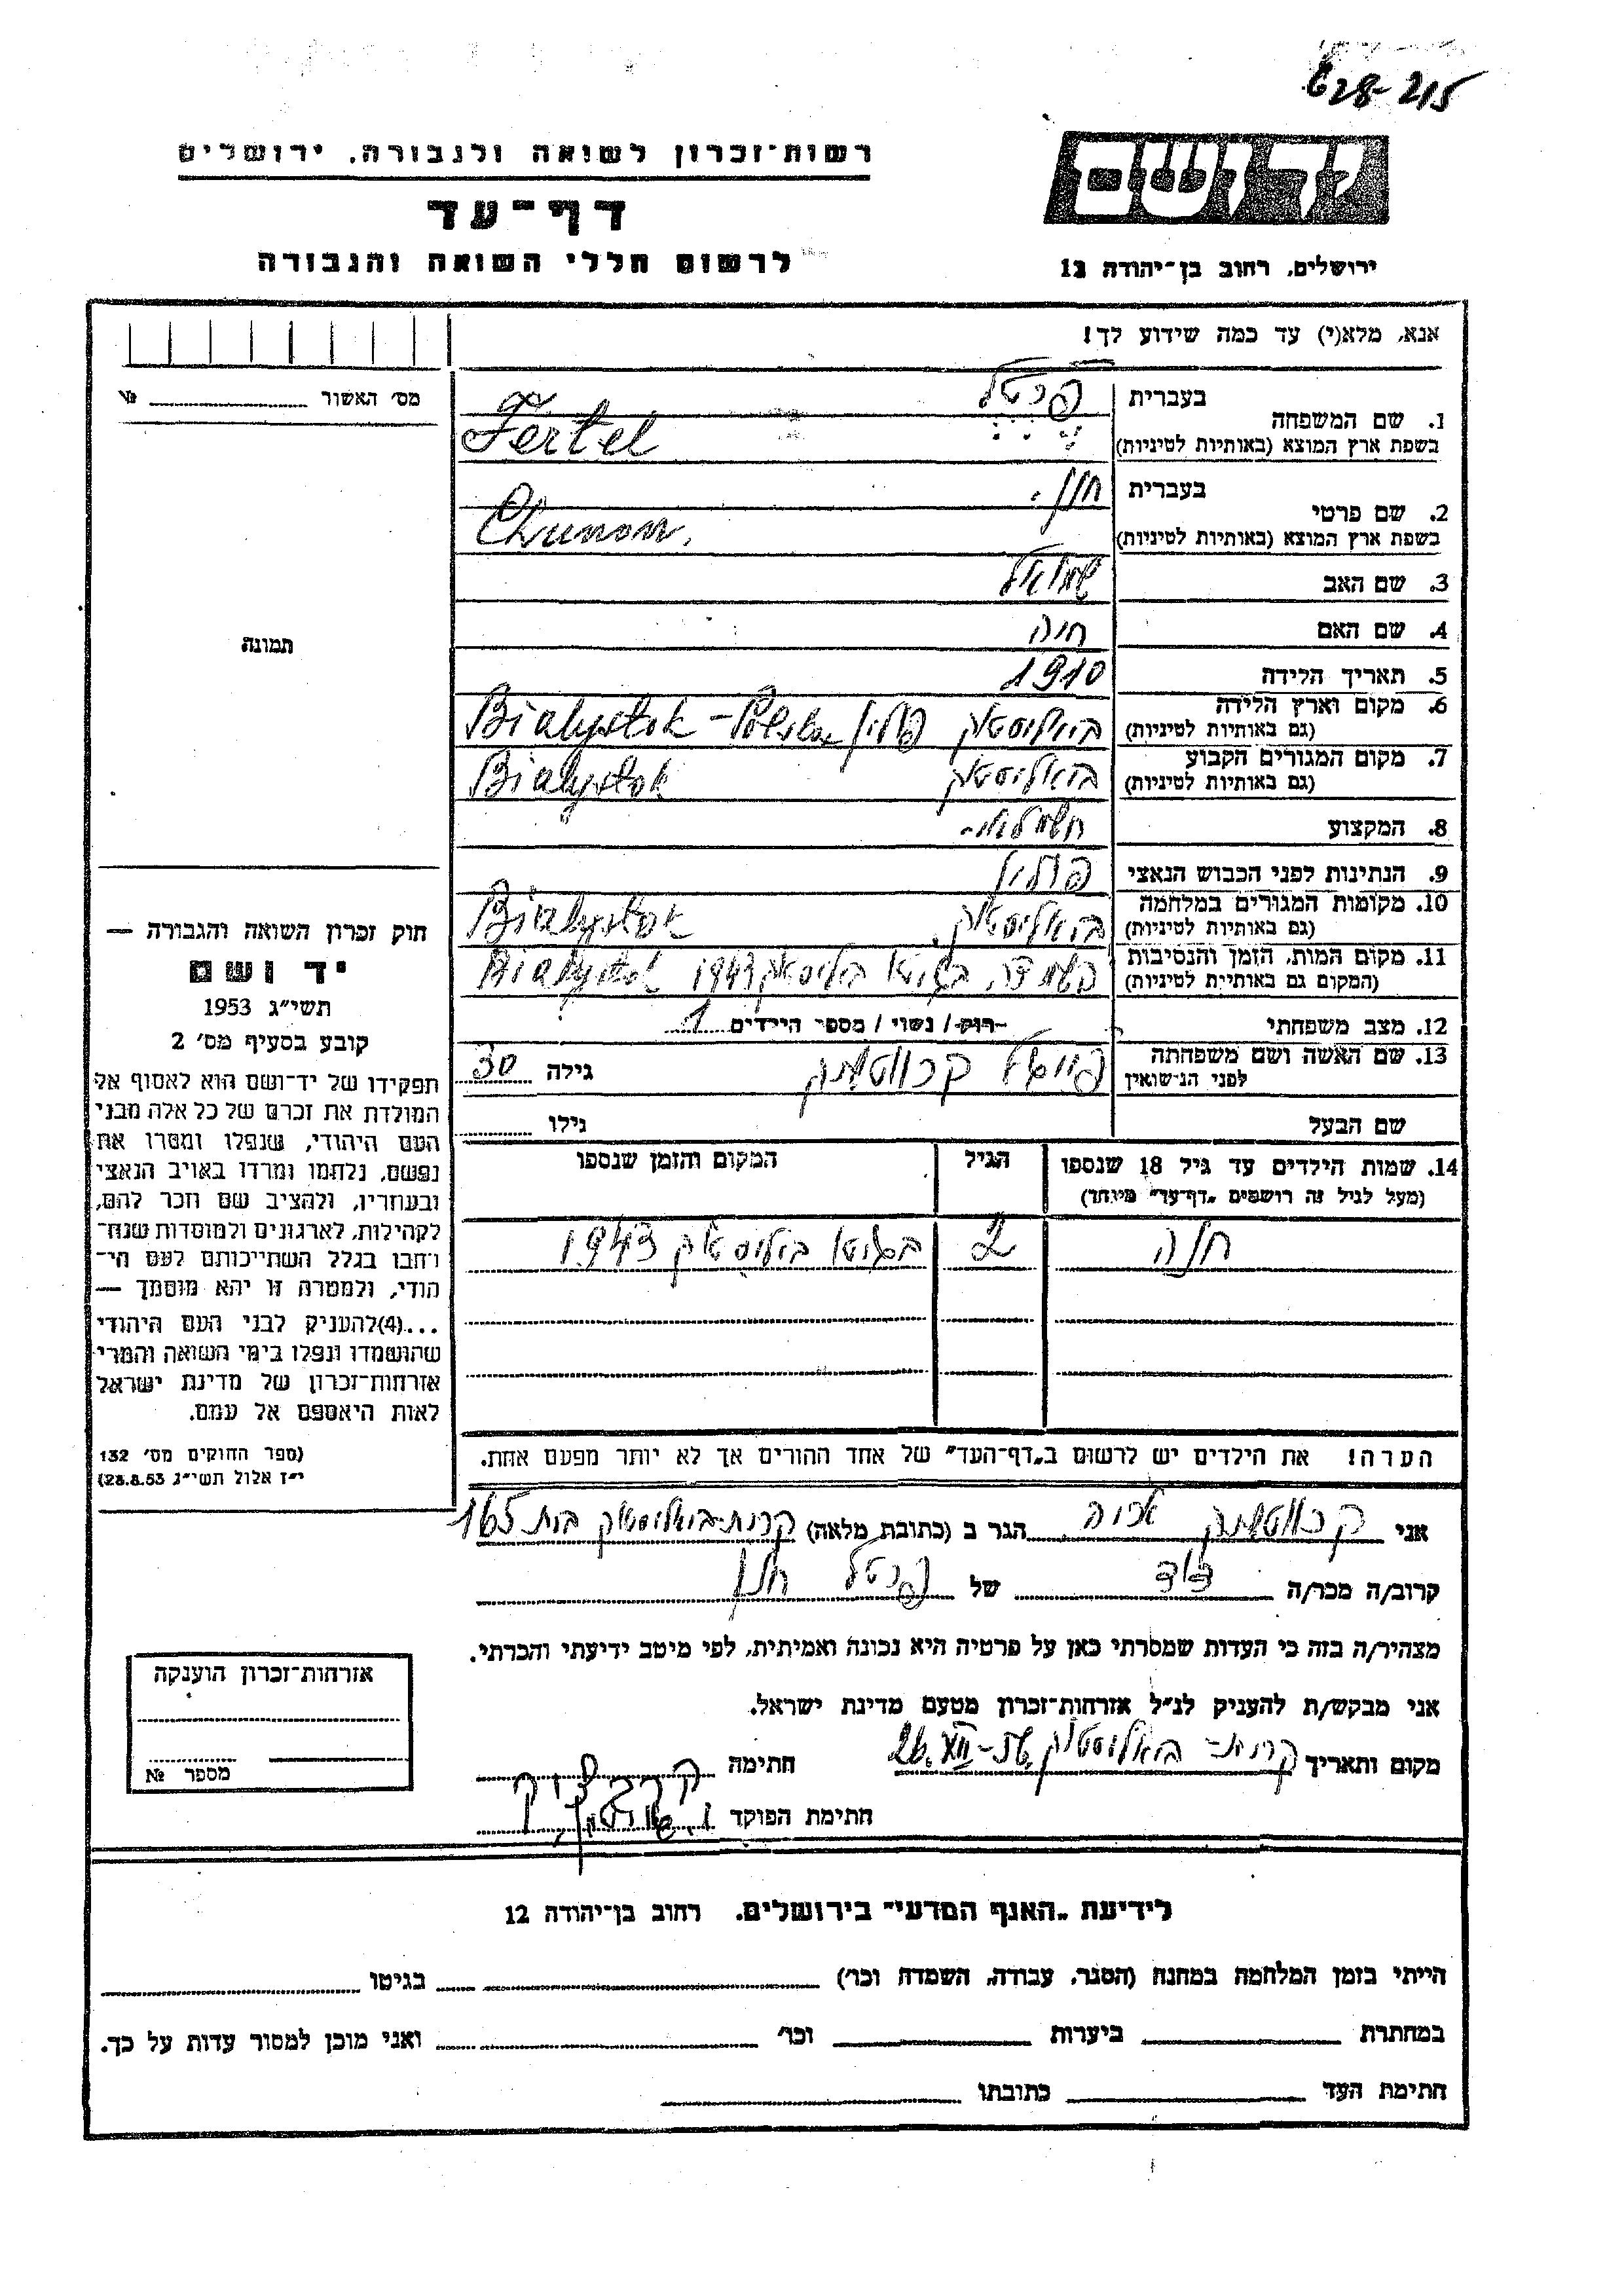 628-215
רשות-זכרון לשואה ולגבורה, ירושלים
יד ושם
דף-עד
לרשום חללי השואה והגבורה
ירושלים, רחוב בן-יהודה 12
אנא, מלא(י) עד כמה שידוע לך!
מס' האשור № 
1. שם המשפחה בעברית פרטל
בשפת ארץ המוצא (באותיות לטיניות) Fertel
2. שם פרטי בעברית חנן.
בשפת ארץ המוצא (באותיות לטיניות)
3. שם האב שמואל
4. שם האם חיה
5. תאריך הלידה 1910
6. מקום וארץ הלידה ביאליסטוק פולין Bialystok - Polska
(גם באותיות לטיניות)
7. מקום המגורים הקבוע ביאליסטוק Bialystok
(גם באותיות לטיניות)
8. המקצוע חשמלאי-
9. הנתינות לפני הכבוש הנאצי פולין
10. מקומות המגורים במלחמה ביאליסטוק. Bialystok
(גם באותיות לטיניות)
11. מקום המות, הזמן והנסיבות בגיטו ביליסטוק 1943 Bialystok
(המקום גם באותיות לטיניות)
12. מצב משפחתי רווק / נשוי / מספר הילדים 1
13. שם האשה ושם משפחתה פייגל גילה 30
לפני הנישואין
שם הבעל גילו
14. שמות הילדים עד גיל 18 שנספו הגיל המקום והזמן שנספו
(מעל לגיל זה רושמים "דף-עד" מיוחד)
חנה 2 בגיטו ביליסטוק 1943
הערה! את הילדים יש לרשום ב"דף-העד" של אחד ההורים אך לא יותר מפעם אחת.
תמונה
חוק זכרון השואה והגבורה —
יד ושם
תשי"ג 1953
קובע בסעיף מס' 2
תפקידו של יד-ושם הוא לאסוף אל
המולדת את זכרם של כל אלה מבני
העם היהודי, שנפלו ומסרו את
נפשם, נלחמו ומרדו באויב הנאצי
ובעוזריו, ולהציב שם וזכר להם,
לקהילות, לארגונים ולמוסדות שנח-
רבו בגלל השתייכותם לעם הי-
הודי, ולמטרה זו יהא מוסמך —
...(4)להעניק לבני העם היהודי
שהושמדו ונפלו בימי השואה והמרי
אזרחות-זכרון של מדינת ישראל
לאות היאספם אל עמם.
(ספר החוקים מס' 132
י"ז אלול תשי"ג 28.8.53)
אני אריה הגר ב (כתובת מלאה) קרית-ביאליסטוק בית 165
קרוב/ה מכר/ה דוד של פרטל חנן
מצהיר/ה בזה כי העדות שמסרתי כאן על פרטיה היא נכונה ואמיתית, לפי מיטב ידיעתי והכרתי.
אני מבקש/ת להעניק לנ"ל אזרחות-זכרון מטעם מדינת ישראל.
מקום ותאריך קרית-ביאליסטוק חתימה
חתימת הפוקד
אזרחות-זכרון הוענקה
מספר №
לידיעת "האגף המדעי" בירושלים. רחוב בן-יהודה 12
הייתי בזמן המלחמה במחנה (הסגר, עבודה, השמדה וכו') בגיטו
במחתרת ביערות וכו' ואני מוכן למסור עדות על כך.
חתימת העד כתובתו